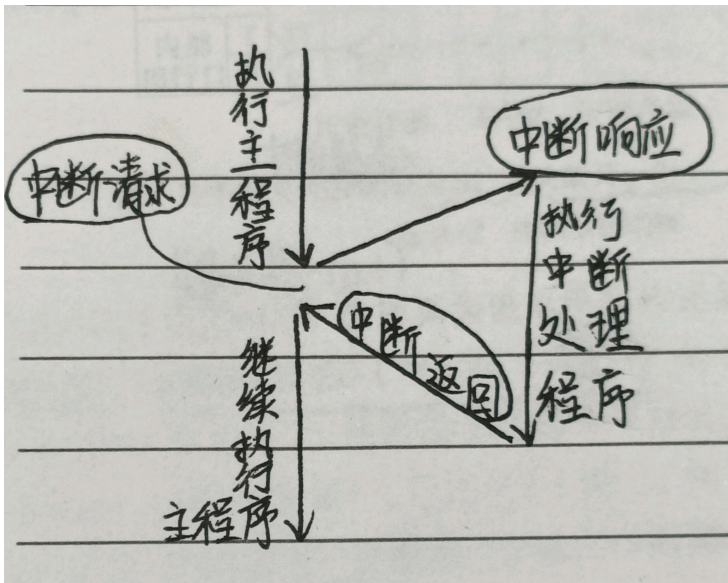 执行主程序
中断请求
中断响应
执行
中断
处理
程序
中断返回
继续执行
主程序